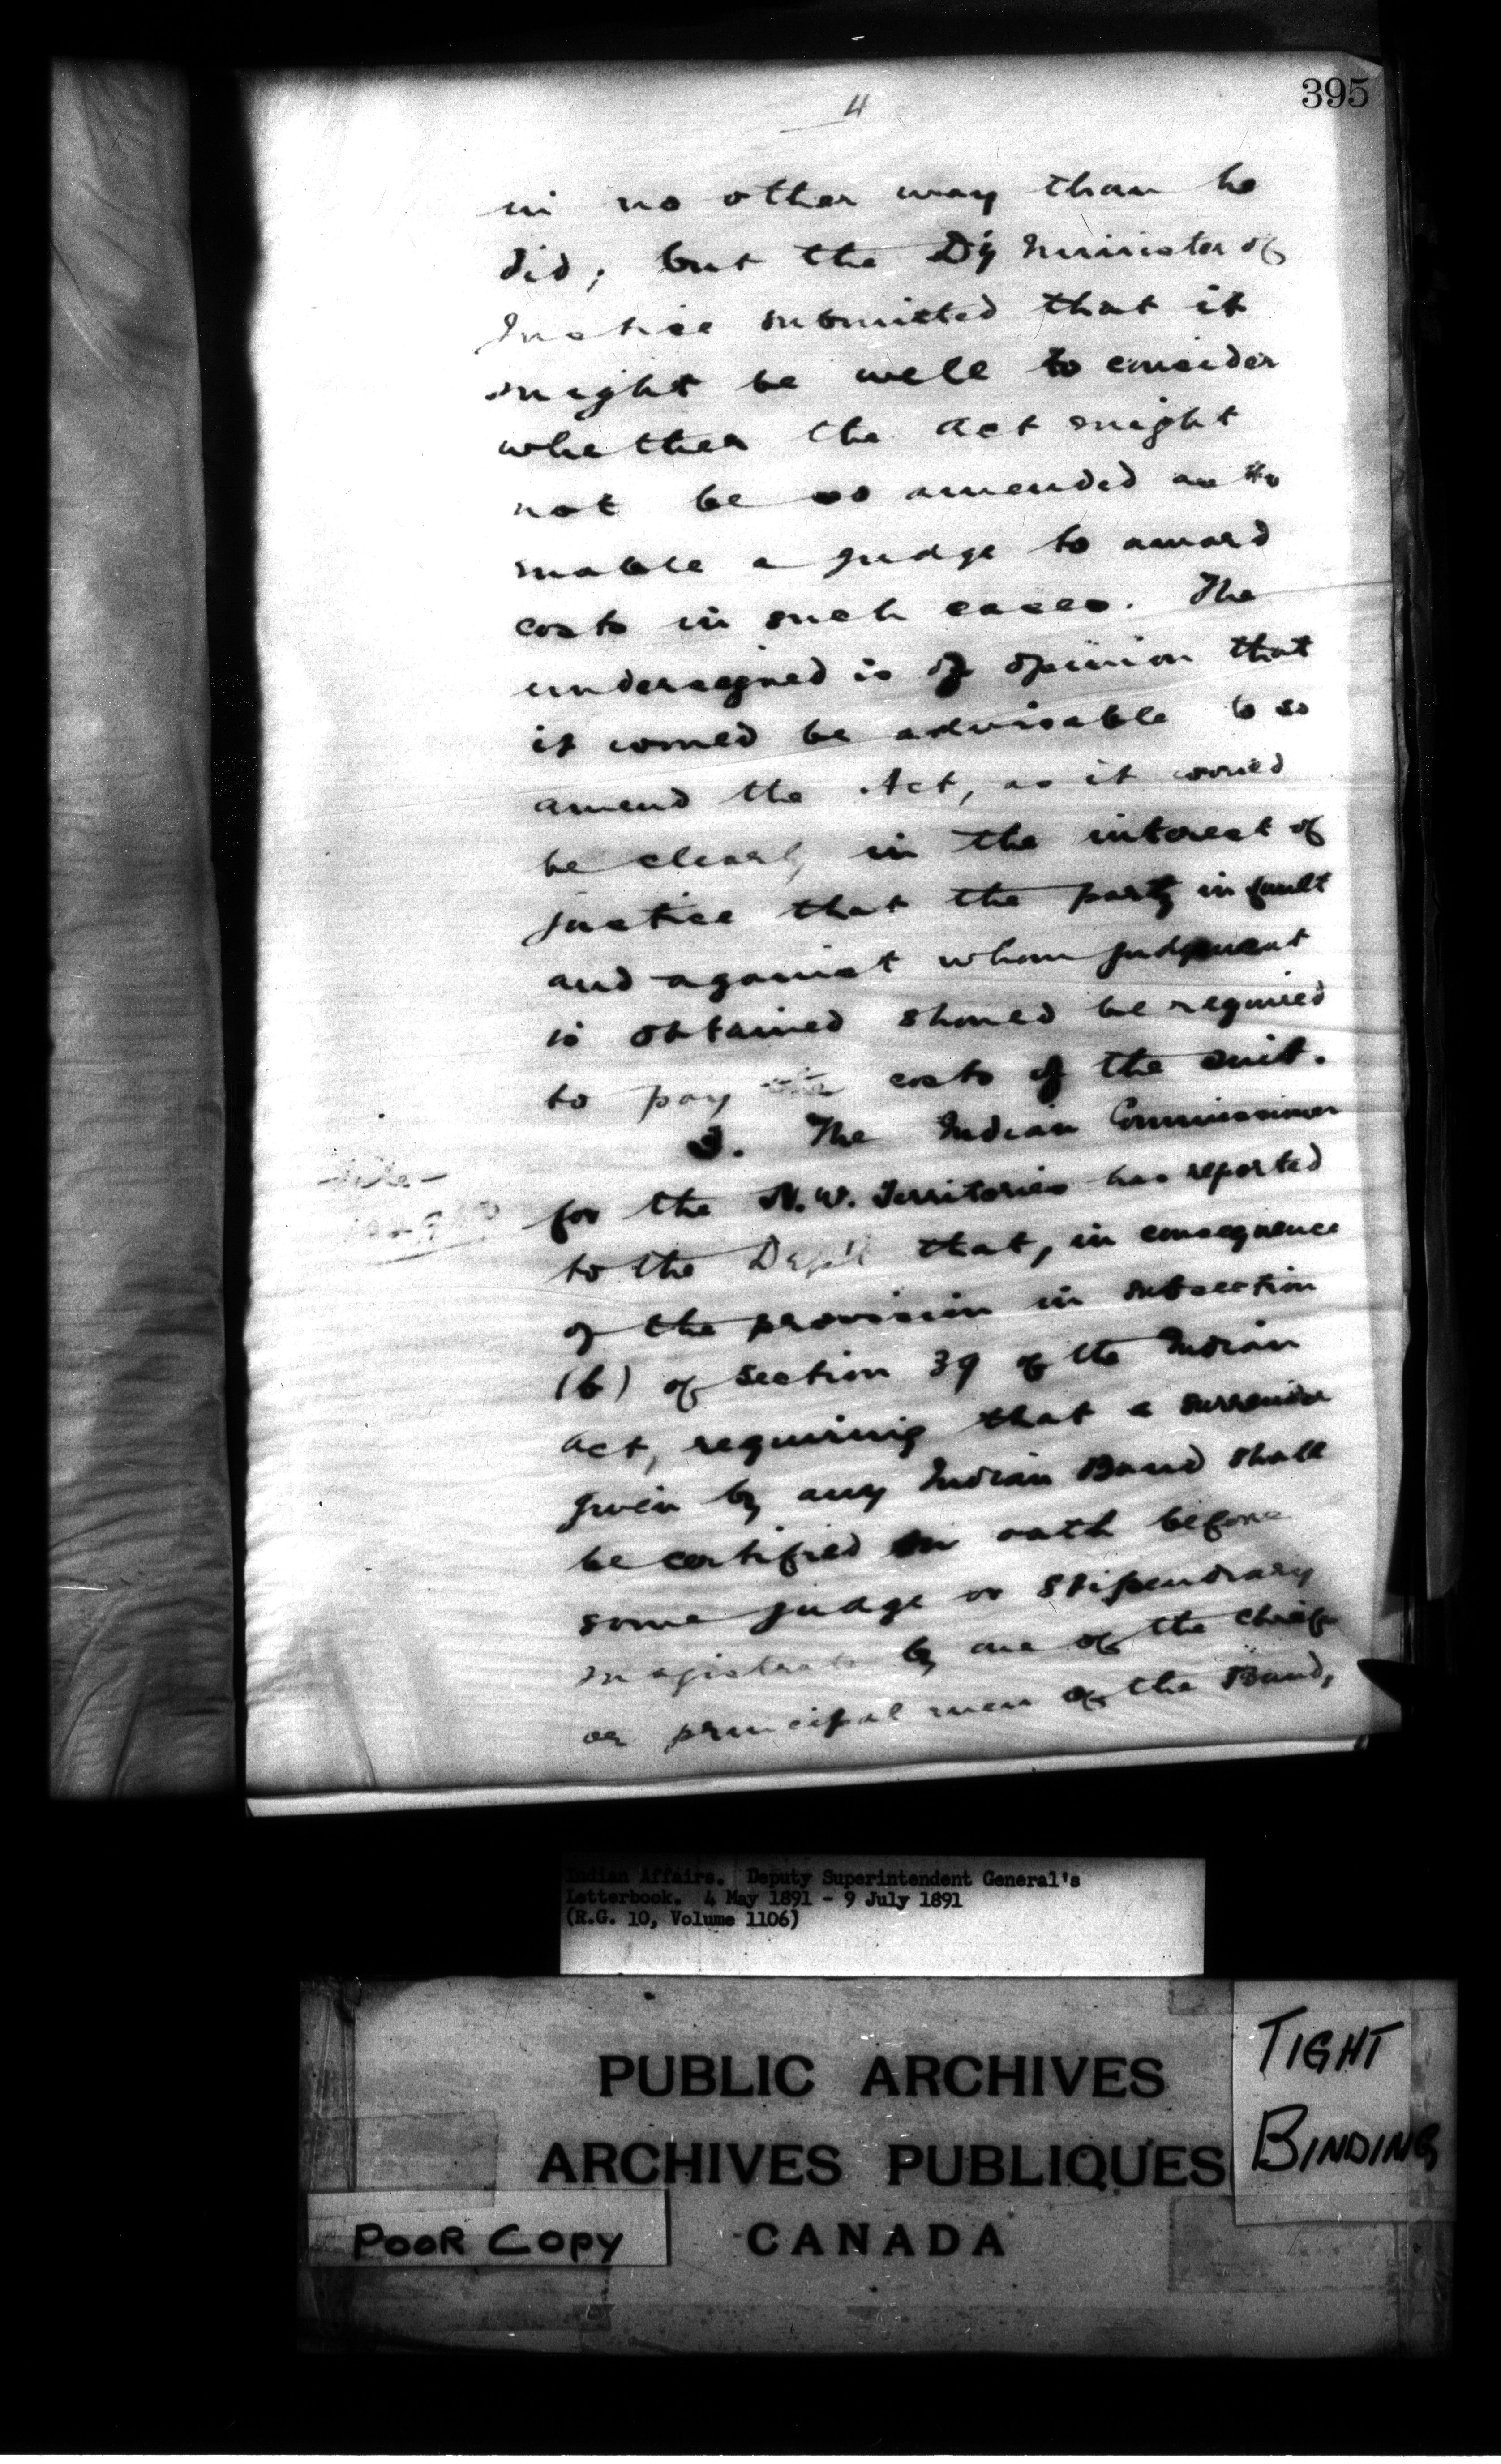 395
4
in no other way than he
did; but the Dy Minister of
Justice submitted that it
might be well to consider
whether the Act might
not be so amended as to
enable a judge to award
costs in such cases. The
undersigned is of opinion that
it would be advisable to so
amend the Act, as it would
be clearly in the interest of
justice that the party in fault
and against whom judgment
is obtained should be required
to pay the costs of the suit.
3. The Indian Commissioner
for the N.W. Territories has reported
to the Dept that, in consequence
of the provision in subsection
(b) of section 39 of the Indian
Act, requiring that a surrender
given by any Indian Band shall
be certified on oath before
some judge or stipendiary
magistrate by one of the chiefs
or principal men of the Band,
File
Indian Affairs. Deputy Superintendent General's
Letterbook. 4 May 1891 - 9 July 1891
(R.G. 10, Volume 1106)
PUBLIC ARCHIVES
ARCHIVES PUBLIQUES
CANADA
TIGHT
BINDING
POOR COPY